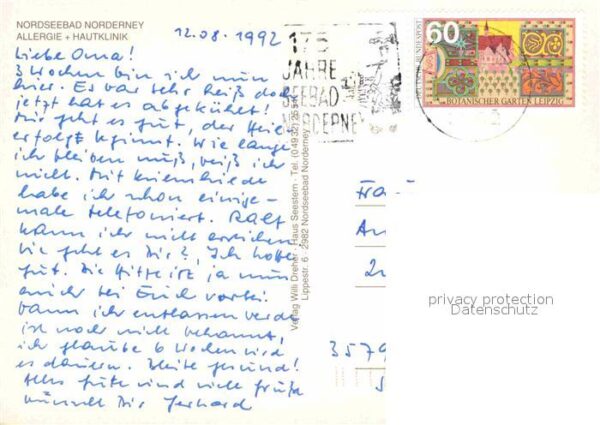 NORDSEEBAD NORDERNEY
ALLERGIE + HAUTKLINIK
12.08.1992
Liebe Oma!
3 Wochen bin ich nun
hier. Es war sehr heiß doch
jetzt hat es abgekühlt!
Mir geht es gut, der Heil
erfolgt beginnt. Wie lange
ich bleiben muß, weiß ich
nicht. Mit
habe ich schon einige-
male telefoniert. Ralf
kann ich nicht erreichen
Wie geht es Dir?, Ich hoffe
gut. Die Hitze ist ja nun
auch bei Euch vorbei.
Wann ich entlassen werde
ist noch nicht bekannt,
ich glaube 6 Wochen wird
es dauern. Bleibe gesund!
Alles gute und viele Grüße
wünscht Dir Gerhard
Verlag Willi Dreher · Haus Seestern · Tel. (04932)
Lippestr. 6 · 2982 Nordseebad Norderney
175
JAHRE
SEEBAD
NORDERNEY
60
DEUTSCHE BUNDESPOST
BOTANISCHER GARTEN LEIPZIG
Fra
An
3579
privacy protection
Datenschutz